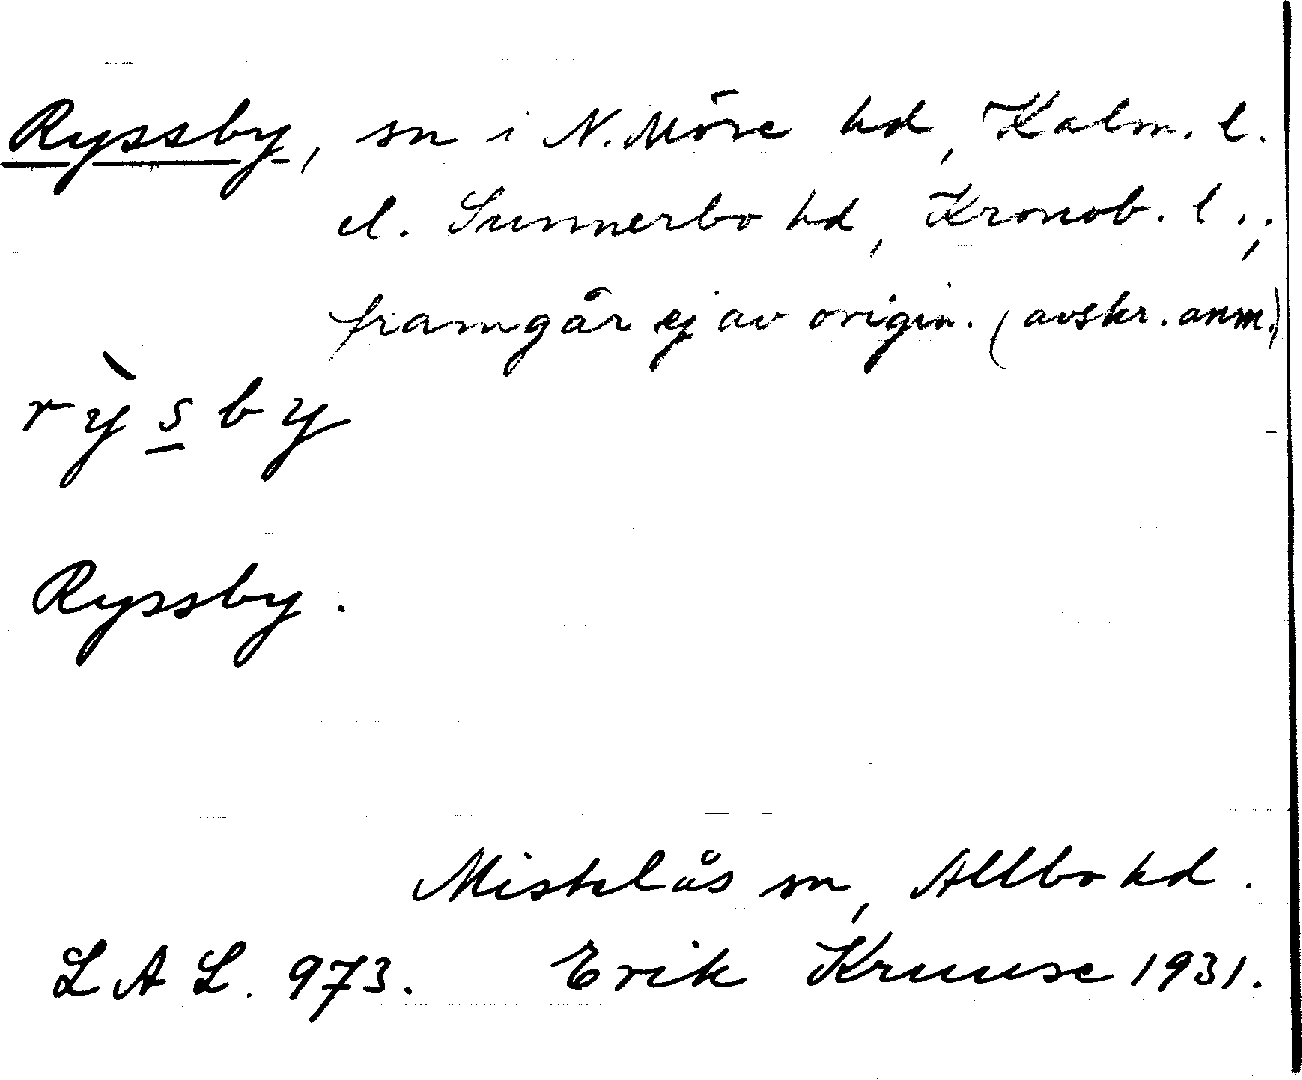 Ryssby, sn i N. Möre hd, Kalm. l.
el. Sunnerbo hd, Kronob. l.;
framgår ej av origin. (avskr. anm.)
rỳsby
Ryssby.
Mistelås sn, Allbo hd.
LAL. 973. Erik Kruuse 1931.